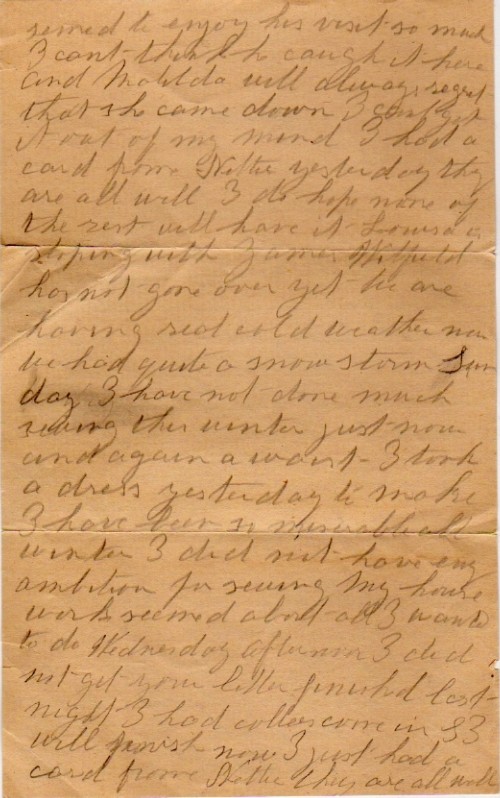 semed to enjoy his visit so much
I cant think he caugh it here
and Matilda will always regret
that she came down I cant get
it out of my mind I had a
card frome Nettie yesterday they
are all will I do hope none of
the rest will have it Louisa is
stoping with James Hitfield
has not gone over yet We are
having real cold weather now
we had quite a snow storm Sun
day I have not done much
sewing this winter just now
and again a waist I took
a dress yesterday to make
I have been so miserable all
winter I did not have eny
ambition for sewing My house
work seemed about all I wanted
to do Wednesday afternoon I did
not get your letter finished last
night I had collers come in so I
will finish now I just had a
card frome Nettie they are all well